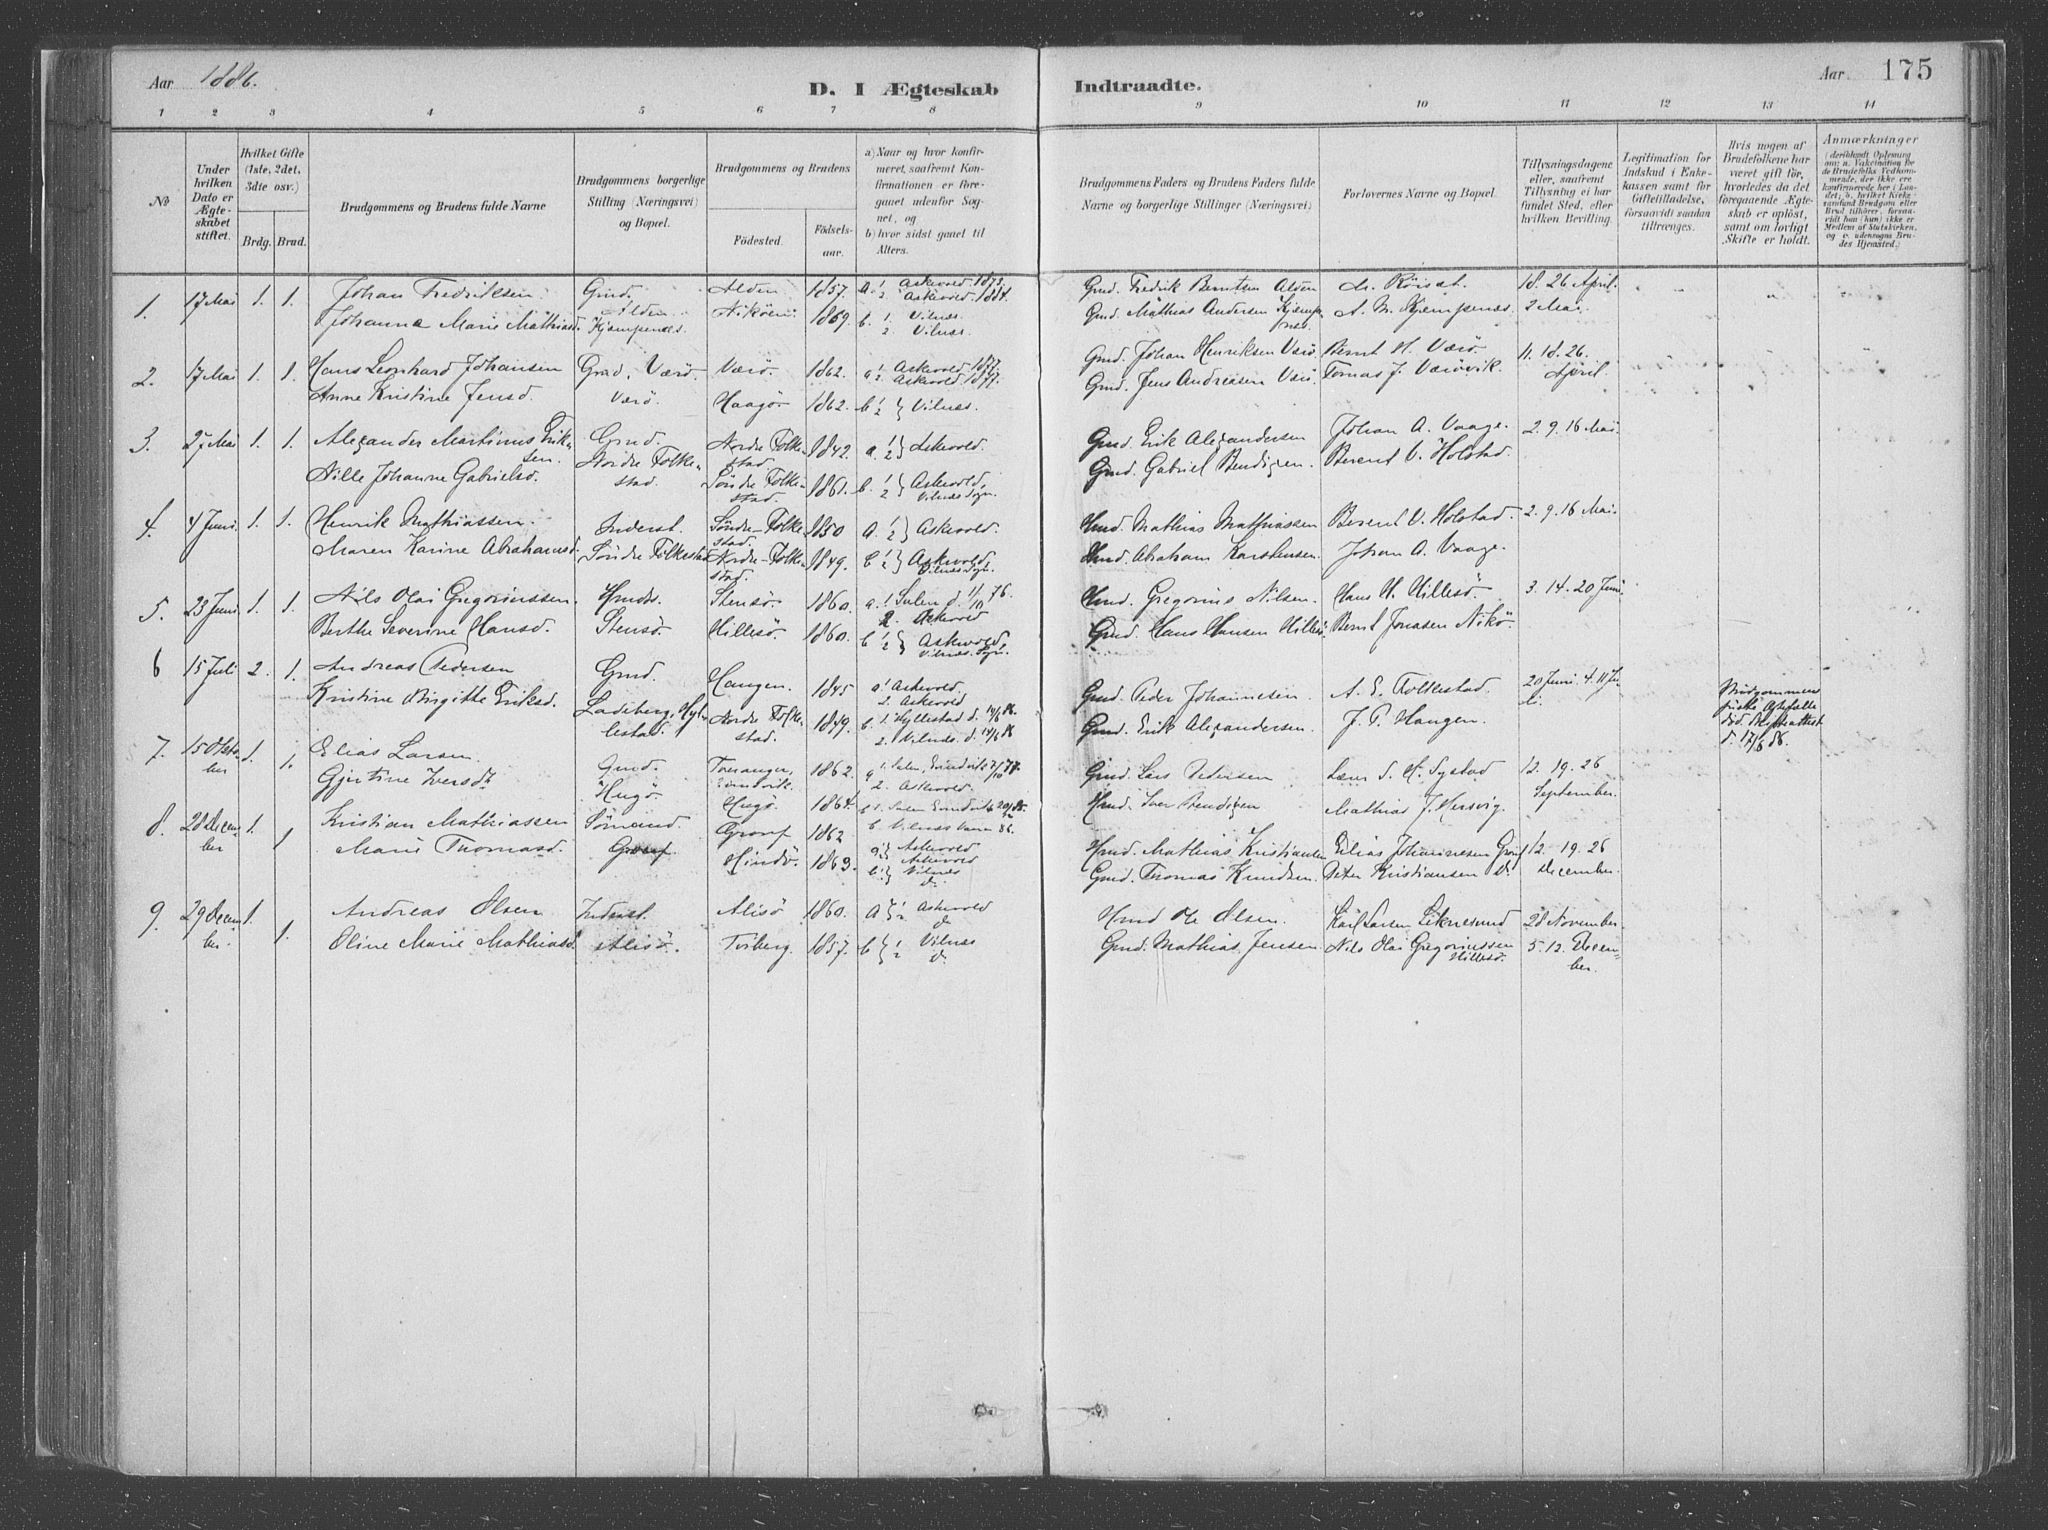 Aar 1886.
D. I Ægteskab
Indtraadte.
Aar 175
1 2 3 4 5 6 7 8 9 10 11 12 13 14
No
Under hvilken Dato er Ægteskabet stiftet.
Hvilket Gifte (1ste, 2det, 3dte osv.)
Brdg. Brud.
Brudgommens og Brudens fulde Navne
Brudgommens borgerlige Stilling (Næringsvei) og Bopæl.
Brudgommens og Brudens
Födested. Födselsaar.
a) Naar og hvor konfirmeret, saafremt Konfirmationen er foregaaet udenfor Sognet, og
b) hvor sidst gaaet til Alters.
Brudgommens Faders og Brudens Faders fulde Navne og borgerlige Stillinger (Næringsvei)
Forlovernes Navne og Bopæl.
Tillysningsdagene eller, saafremt Tillysning ei har fundet Sted, efter hvilken Bevilling.
Legitimation for Indskud i Enkekassen samt for Giftetilladelse, forsaavidt saadan tiltrænges.
Hvis nogen af Brudefolkene har været gift för, hvorledes da det foregaaende Ægteskab er oplöst, samt om lovligt Skifte er holdt.
Anmærkninger
1. 17 Mai 1. 1. Johan Fredriksen Gmd. Alden Alden 1857. a. 1 Askevold 1873. 2 Askevold 1884. Gmd. Fredrik Berntsen Alden 18. 26 April.
Johanna Marie Mathiasd. Kjempenæs. Niköen 1869. b. 1 Vilnæs. 2 Vilnæs. Gmd. Mathias Andersen Kjempenes. A. M. Kjempenæs. 2 Mai.
2. 17 Mai 1. 1. Hans Leonhard Johansen Gmd. Værö Værö. 1862. a 1 Askevold 1877. 2 Askevold 1877. Gmd. Johan Henriksen Værö Bernt H. Værö 11. 18. 26. April.
Anne Kristine Jensd. Værö. Haagö. 1862. b 1 2 Vilnæs. Gmd. Jens Andreasen Værö Tomas J. Værövik.
3. 27 Mai 1. 1. Alexander Martinus Eriksen. Gmd. Nordre Folkestad. Nordre Folkestad. 1842. a. 1 2 Askevold. Gmd. Erik Alexandersen Johan A. Vaage. 2. 9. 16 Mai.
Nille Johanne Gabrielsd. Söndre Folkestad. 1861. b. 1 2 Askevold, Vilnæs Sogn. Gmd. Gabriel Bendixen. Berent V. Holstad.
4. 4 Juni. 1. 1. Henrik Mathiassen. Inderst. Söndre Folkestad. 1850 a. 1 2 Askevold. Hmd. Mathias Mathiassen Berent V. Holstad. 2. 9. 16 Mai.
Maren Karine Abrahamsd. Söndre Folkestad Nordre Folkestad. 1849. b 1 2 Askevold Vilnes Sogn. Hmd. Abraham Karstensen. Johan A. Vaage.
5. 23 Juni. 1. 1. Nils Olai Gregoriussen. Hmds. Stensö. 1860. a. 1 Sulen d. 1/10 76. 2. Askevold Hmd. Gregorius Nilsen. Hans H. Hillesö. 3. 14. 20 Juni.
Berthe Severine Hansd. Stensö. Hillesö. 1860. b 1 2 Askevold Vilnæs Sogn. Gmd. Hans Hansen Hillesö Bernt Jonasen Nikö.
6 15 Juli 2. 1. Andreas Pedersen Gmd. Haugen. 1845 a. 1 Askevold 2. Askevold Gmd. Peder Johannesen. A. E. Folkestad. 20 Juni. 4. 11 Juli.
Kristine Birgitte Eriksd. Ladeberg, Hyllestad. Nordre Folkestad. 1849. b. 1. Hyllestad d. 14/6 86. 2. Vilnæs d. 14/6 86 Gmd. Erik Alexandersen. J. P. Haugen.
d. 17/6 86.
7. 15 October 1. 1. Elias Larsen Gmd. 1862. a 1. Sulen, Evindvik 7/10 77. 2. Askevold. Gmd. Lars Pedersen 12. 19. 26 September.
Gjertine Iversdt. Hugö. Hugö. 1864. b 1. Sulen Evindvik Hmd. Iver Bendixen Mathias J. Hersvig.
8. 28 December 1. 1. Kristian Mathiassen Sömand. Gronf 1862 a 1 Askevold 2 Askevold Hmd. Mathias Kristiansen Elias Johannesen Gronf 12. 19. 26 December.
Marie Thomasd. Gronf. Hindö. 1863. b 1 Vilnæs d. Gmd. Thomas Knudsen. Peter Kristiansen d.
9. 29 December. 1. 1. Andreas Olsen Inderst. Alisö 1860. a 1 2 Askevold d. Hmd Ole Olsen. Karl Larsen Liknesund 28 November.
Oline Marie Mathiasd. Alisö. Toiberg. 1857. b 1 2 Vilnæs d. Gmd. Mathias Jensen Nils Olai Gregoriussen Hillesö. 5. 12. December.